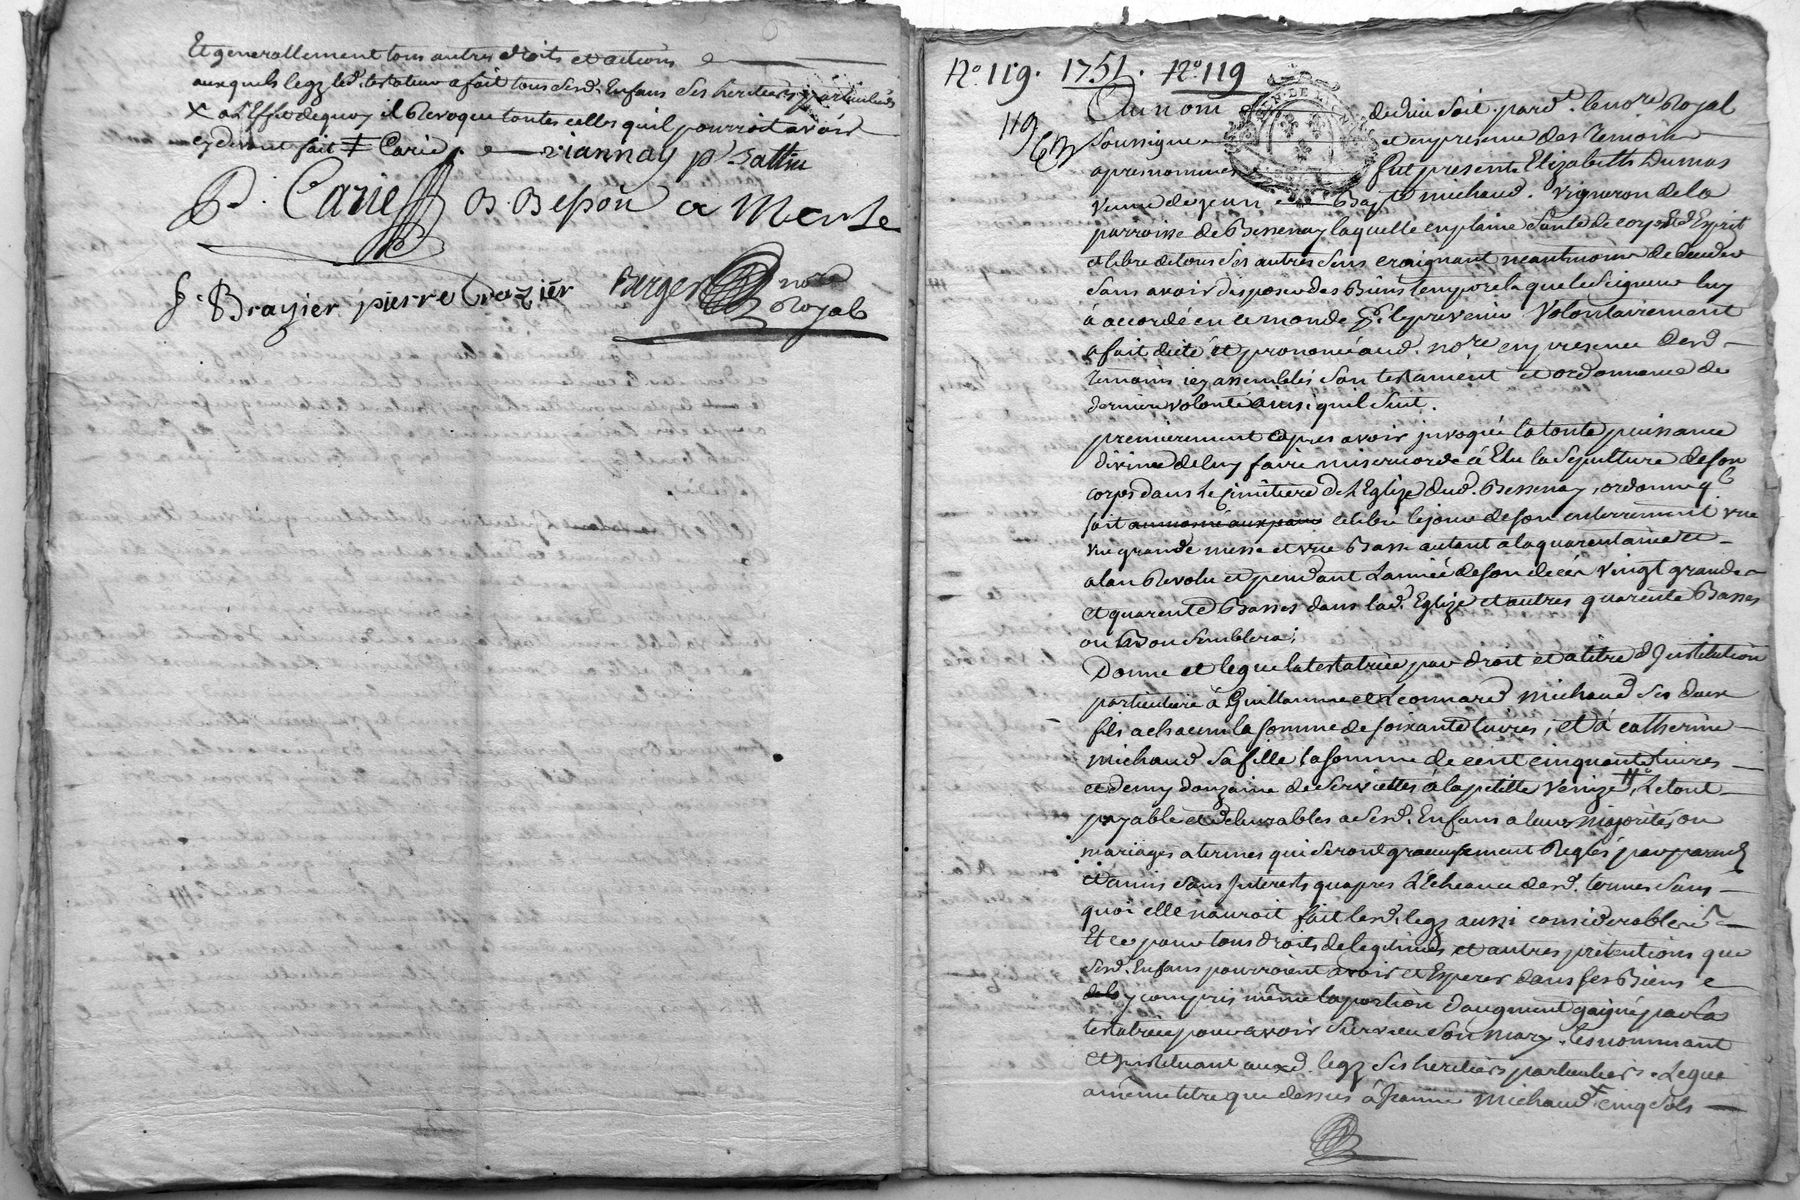 Et generallement tous autres droits et actions
auxquels legz led. testateur a fait tous sesd. Enfans ses heritiers particuliers
X a L'Effet dequoy il Revoque toutes celles quil pourroit avoir
cydevant fait ǂ Carié viannay p. Sattin
P. Carié B. Besson C Merle
J. Brayier pierre Crozier Parger nore Royal
No. 119. 1751. No. 119
119
Au nom de dieu soit. pard. le nore Royal
Soussigné et en presence des temoins
apres nommés fut presente Elizabeth Dumas
veuve de jean Bapte michaud. vigneron de la
parroisse de Bessenay laquelle en plaine Santé de corps et d'Esprit
et libre de tous ses autres sens craignant neantmoins de deceder
sans avoir disposé des Biens temporels que le Seigneur luy
à accordé en ce monde pr. le prevenir Volontairement
a fait dicté et prononcé aud. nore en presence desd.
temoins icy assemblés son testament et ordonnance de
derniere volonté ainsi quil suit.
premierement apres avoir jnvoqué la toute puissance
divine de luy faire misericorde à Elu la Sepulture de son
corps dans le Cimetiere de L'Eglize dud. Bessenay, ordonne ql
soit celebré le jour de son enterrement une
une grande messe et une Basse autant a la quarentaine et
a l'an Revolu et pendant L'année de son decés vingt grandes
et quarente Basses dans lad. Eglize et autres quarente Basses
ou Bon semblera;
Donne et legue la testatrice par droit et a titre d'Jnstitution
particuliere à Guillaume et Leonnard michaud ses deux
fils a chacun la somme de soixante livres, et à catherine
michaud sa fille la somme de cent cinquante livres
et demy douzaine de serviettes à la petitte venize, Le tout
payable et delivrables a sesd. Enfans a leurs majorités ou
mariages a termes qui seront gracieusement Reglés par parens
et amis sans Jnterests quapres L'Echeance desd. termes sans
quoi elle n'auroit fait lesd. legz aussi considerables
Et ce pour tous droits de legitimes et autres pretentions que
sesd. Enfans pourroient avoir et Esperer dans ses Biens
y compris même la portion d'augment gaigné par la
testatrice pour avoir survecu son mary. les nommant
et Jnstituant auxd. legz ses heritiers particuliers. Legue
a même titre que dessus à Jeanne Michaud X cinq sols